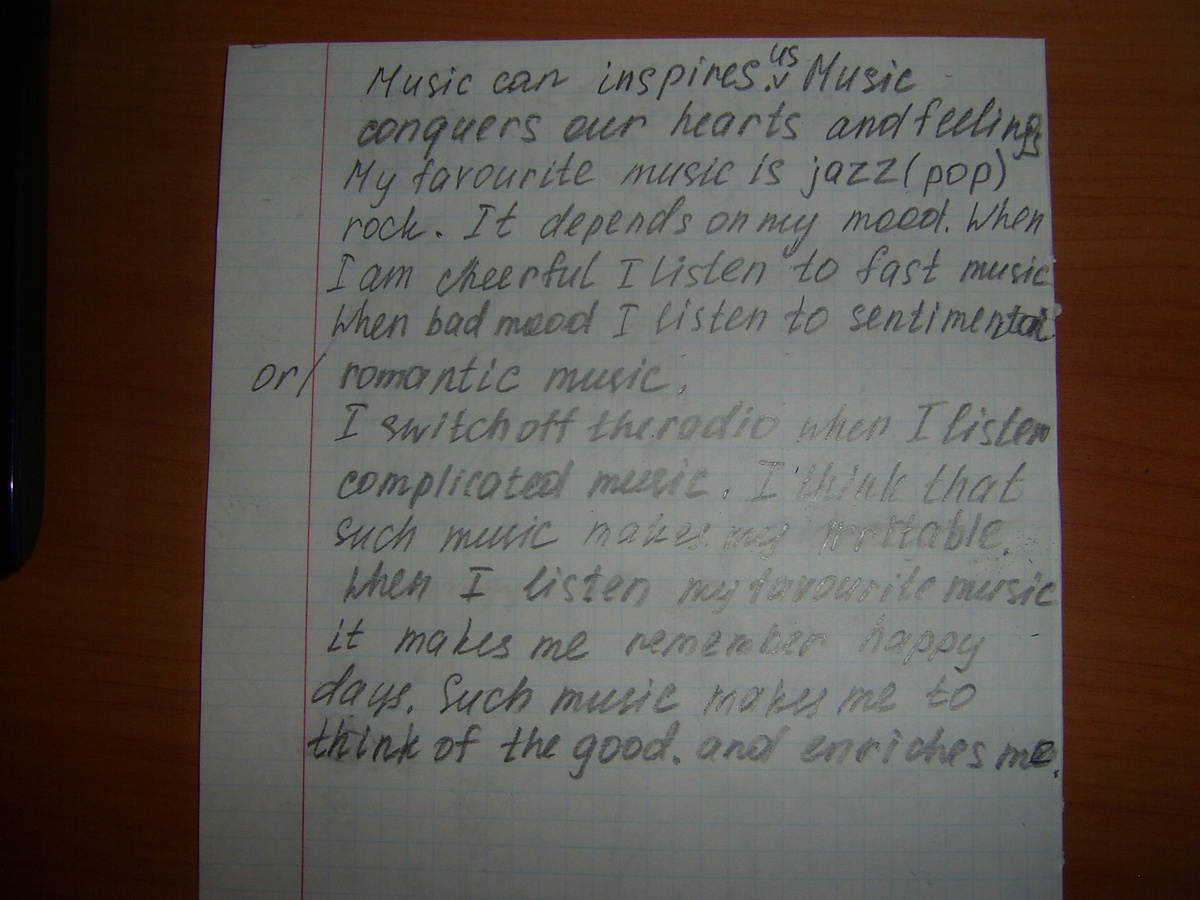 Music can inspires. us Music
conquers our hearts and feelings
My favourite music is jazz (pop)
rock. It depends on my mood. When
I am cheerful I listen to fast music
When bad mood I listen to sentimental
or/ romantic music.
I switch off the radio when I listen
complicated music. I think that
such music makes my irritable.
When I listen my favourite music
it makes me remember happy
days. Such music makes me to
think of the good. and enriches me.